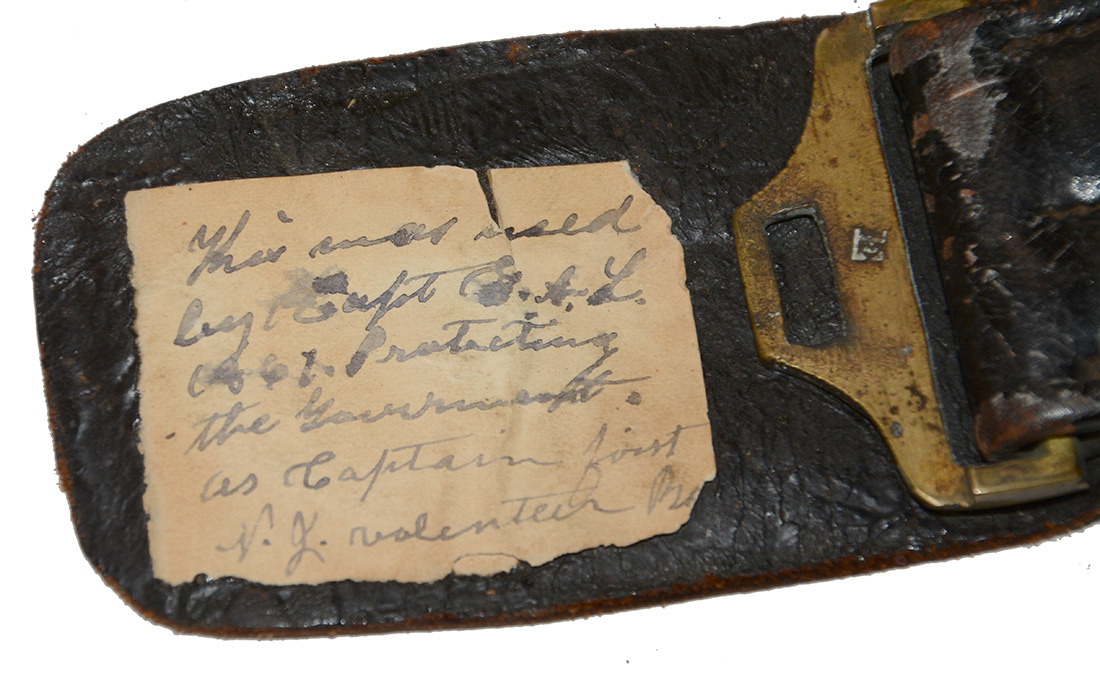 This was used
by Capt E. A. L.
Protecting
the Government.
as Captain first
N. J. volenteer